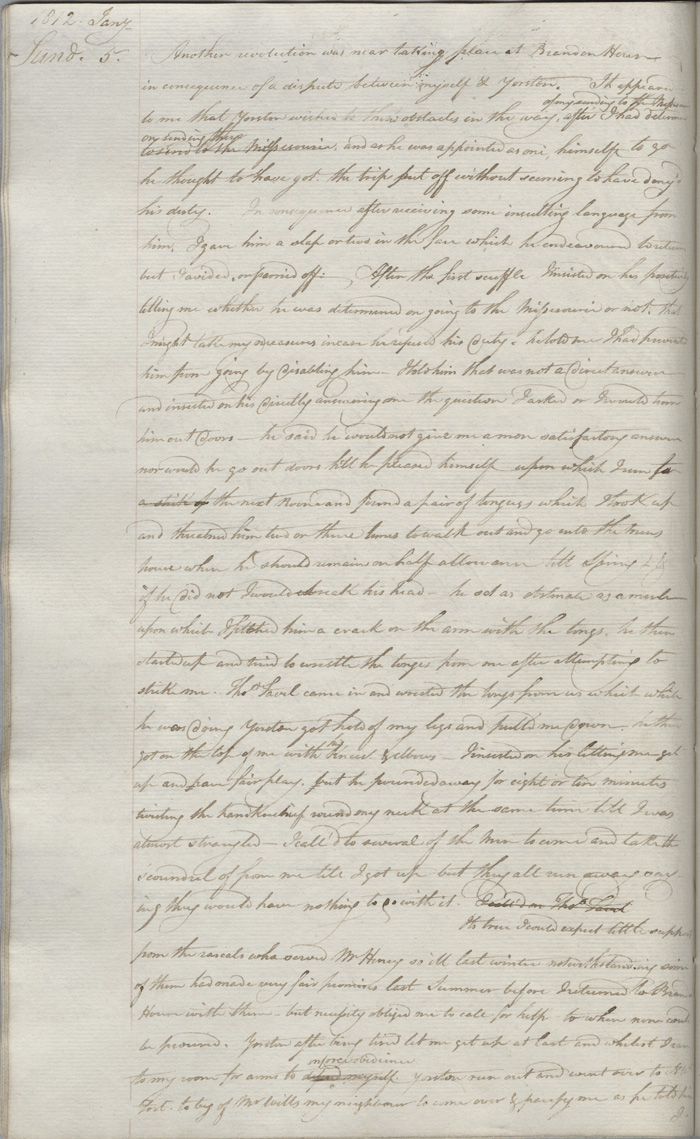 1812. Jany
Sund. 5.
Another revolution was near taking place at Brandon House
in consequence of a dispute between myself & Yorston. It appears
of my sending to the Missourie
to me that Yorston wished to throw obstacles in the way, after I had determined
on sending there
to send to the Missourie, and as he was appointed as one, himself to go
he thought to have got the trip put off without seeming to have deny'd
his duty. In consequence after receiving some insulting language from
him, I gave him a slap or two in the face which he endeavoured to return
but I avoided or parried off. After the first scuffle I insisted on his positively
telling me whether he was determined on going to the Missourie or not, that
I might take my measures in case he refused his duty & he told me I had prevented
him from going by disabling him. I told him that was not a direct answer
and insisted on his directly answering me the question I asked or I would turn
him out doors – he said he would not give me a more satisfactory answer
nor would he go out doors till he pleased himself upon which I run for
a stick of the next Room and found a pair of tongues which I took up
and threatned him two or three times to walk out and go into the mens
house where he should remain on half allowance till Spring &
if he did not I would break his head – he sat as obstinate as a mule
upon which I fetched him a crack on the arm with the tongs. he then
started up and tried to wrestle the tongs from me after attempting to
strike me. Thos. Favel came in and wrested the tongs from us which while
he was doing Yorston got hold of my legs and pulled me down. he then
got on the top of me with his knees & elbows – I insisted on his letting me get
up and have fair play. but he pounded away for eight or ten minutes
twisting the handkerchief round my neck at the same time till I was
almost strangled – I call'd to several of the Men to come and take the
scoundrel of from me till I got up but they all run away say-
ing they would have nothing to do with it. I called on Thos. Favel
Its true I could expect little support
from the rascals who served Mr Heney so ill last winter notwithstanding some
of them had made very fair promises last Summer before I returned to Brandon
House with them – but necessity obliged me to call for help to where none could
be procured. Yorston after being tired let me get up at last and whilst I run
enforce obedience
to my room for arms to defend myself. Yorston run out and went over to the
Fort to beg of Mr Wills my neighbour to come over & pacify me as he told him
I